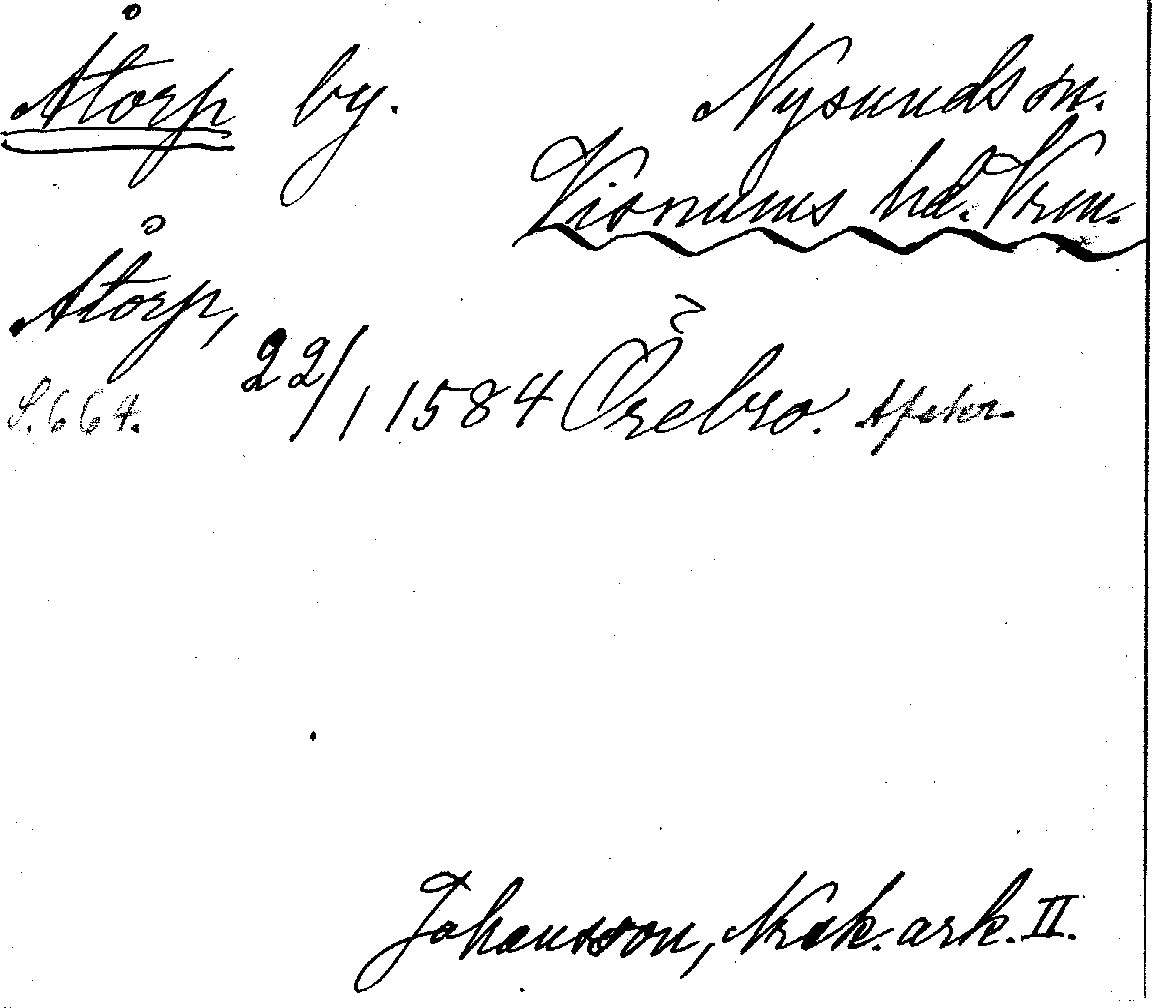 Åtorp by. Nysunds sn.
Visnums hd. Vrm.
Åtorp,
S. 664. 22/1 1584 Örebro. Afskr.
Johansson, Norak. ark. II.